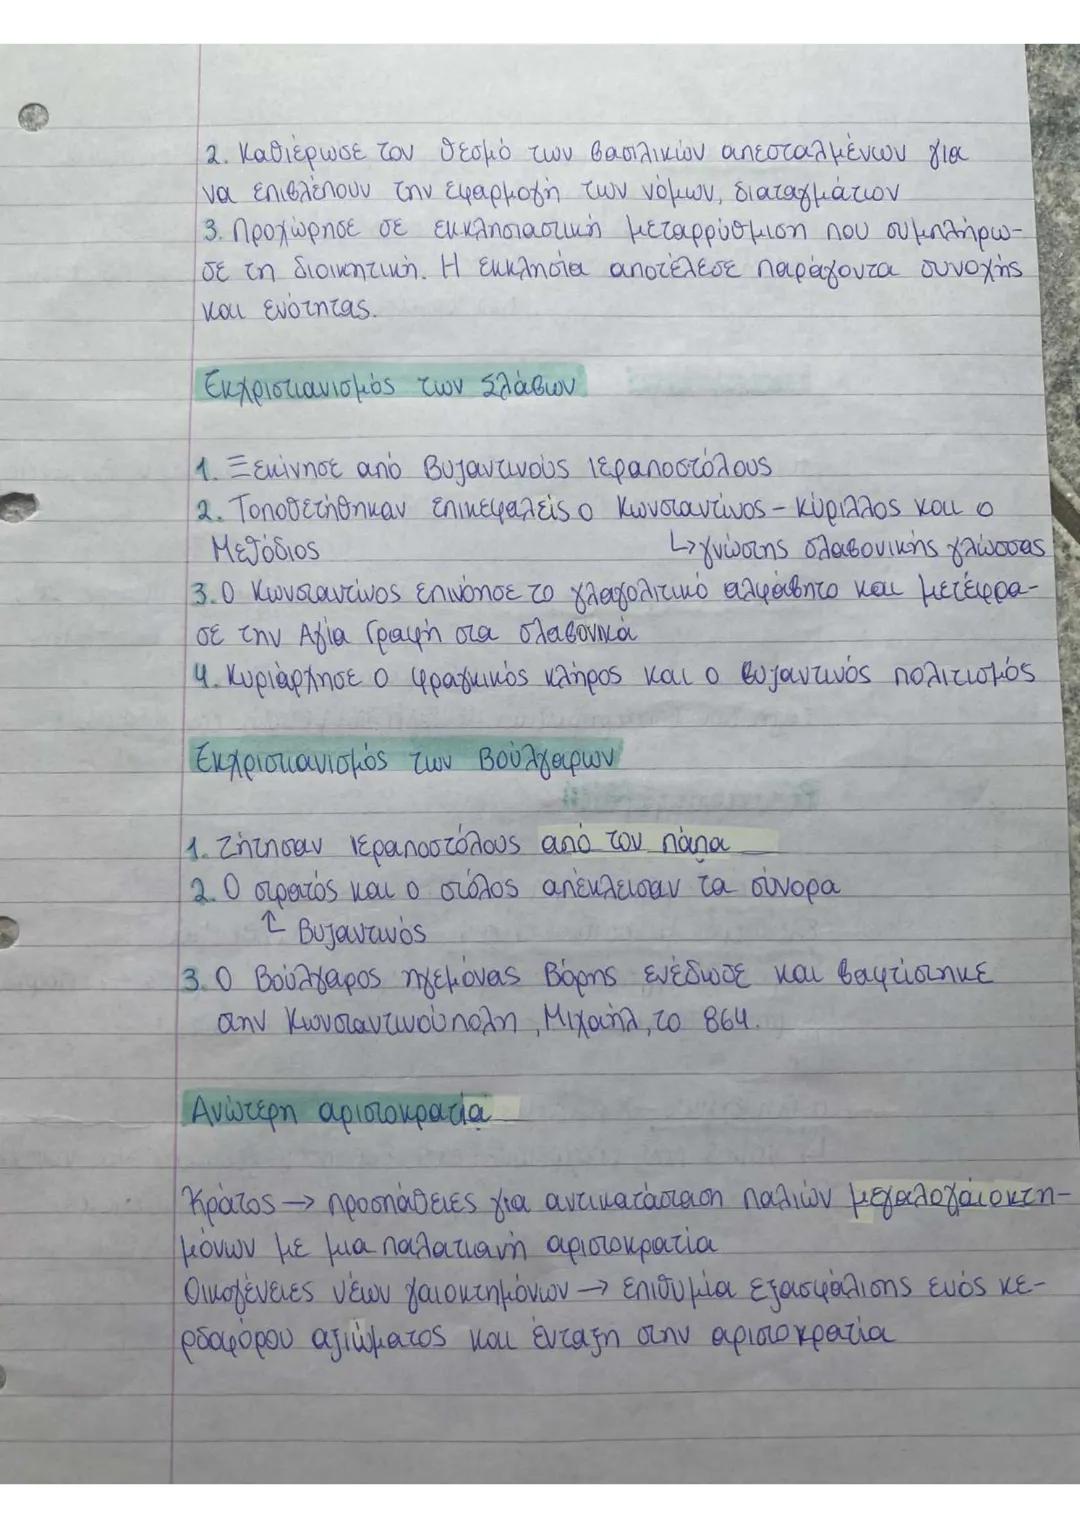 2. Καθιέρωσε τον θεσμό των βασιλικών απεσταλμένων για
να επιβλέπουν την εφαρμογή των νόμων, διαταγμάτων
3. Προχώρησε σε εκκλησιαστική μεταρρύθμιση που συμπλήρω-
σε τη διοικητική. Η εκκλησία αποτέλεσε παράγοντα συνοχής
και ενότητας.
Εκχριστιανισμός των Σλάβων
1. Ξεκίνησε από Βυζαντινούς ιεραποστόλους
2. Τοποθετήθηκαν επικεφαλείς ο Κωνσταντίνος - Κύριλλος και ο
Μεθόδιος ↳ γνώστης σλαβονικής γλώσσας
3. Ο Κωνσταντίνος επινόησε το γλαγολιτικό αλφάβητο και μετέφρα-
σε την Αγία Γραφή στα σλαβονικά
4. Κυριάρχησε ο φραγκικός κλήρος και ο βυζαντινός πολιτισμός
Εκχριστιανισμός των Βούλγαρων
1. Ζήτησαν ιεραποστόλους από τον πάπα
2. Ο στρατός και ο στόλος απέκλεισαν τα σύνορα
↑ Βυζαντινός
3. Ο Βούλγαρος ηγεμόνας Βόρης ενέδωσε και βαφτίστηκε
στην Κωνσταντινούπολη, Μιχαήλ, το 864.
Ανώτερη αριστοκρατία
Κράτος → προσπάθειες για αντικατάσταση παλιών μεγαλογαιοκτη-
μόνων με μια παλατιανή αριστοκρατία
Οικογένειες νέων γαιοκτημόνων → επιθυμία εξασφάλισης ενός κε-
ρδοφόρου αξιώματος και ένταξη στην αριστοκρατία